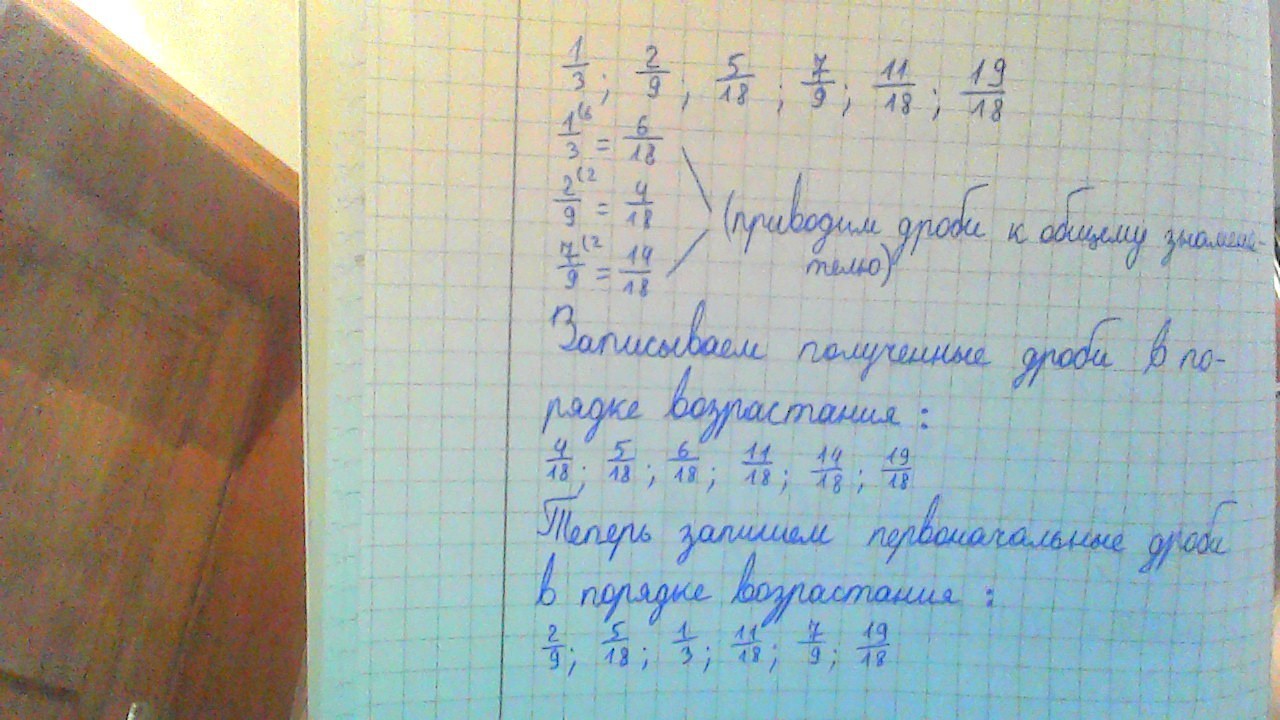 1/3; 2/9; 5/18; 7/9; 11/18; 19/18
1/3 (6 = 6/18
2/9 (2 = 4/18
(приводим дроби к общему знамена-
7/9 (2 = 14/18
телю)
Записываем полученные дроби в по-
рядке возрастания:
4/18; 5/18; 6/18; 11/18; 14/18; 19/18
Теперь запишем первоначальные дроби
в порядке возрастания:
2/9; 5/18; 1/3; 11/18; 7/9; 19/18